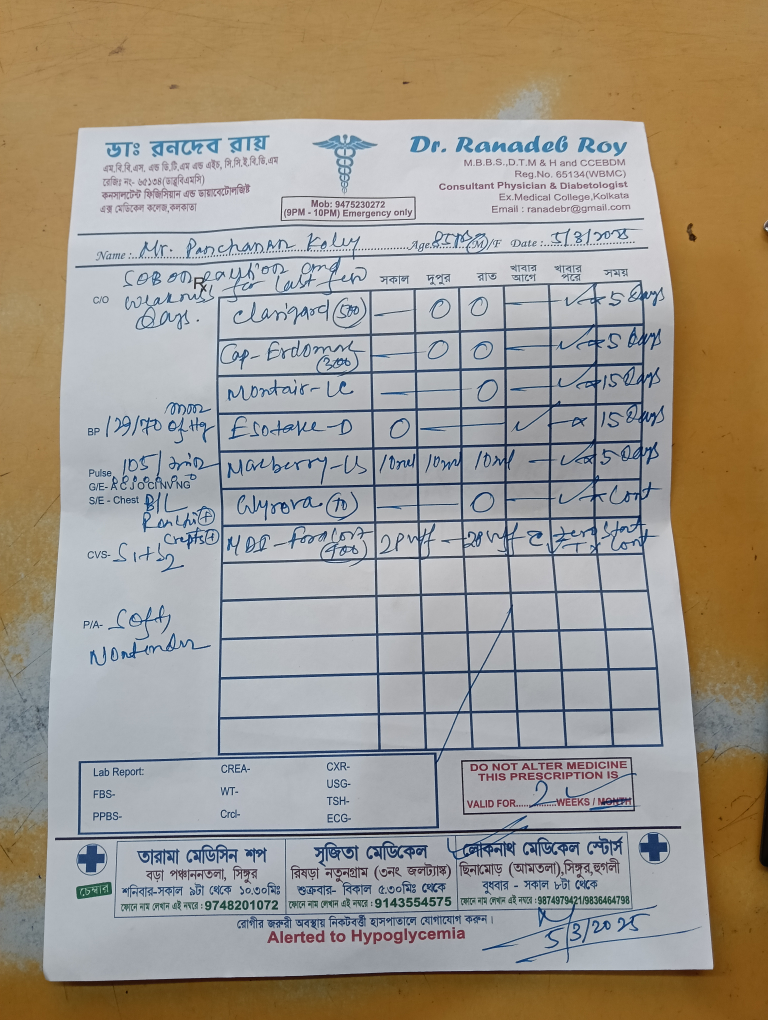 ডাঃ রনদেব রায়
এম.বি.বি.এস, এন্ড ডি.টি.এম এন্ড এইচ, সি.সি.ই.বি.ডি.এম
রেজিঃ নং- ৬৫১৩৪(ডব্লুবিএমসি)
কনসালটেন্ট ফিজিসিয়ান এন্ড ডায়াবেটোলজিষ্ট
এক্স মেডিকেল কলেজ,কলকাতা
Mob: 9475230272
(9PM - 10PM) Emergency only
Dr. Ranadeb Roy
M.B.B.S.,D.T.M & H and CCEBDM
Reg.No. 65134(WBMC)
Consultant Physician & Diabetologist
Ex.Medical College,Kolkata
Email : ranadebr@gmail.com
Name : Mr. Panchanan Koley Age: M/F Date : 5/3/2025
C/O SOB on and
weakness for last few
days.
Rx সকাল দুপুর রাত খাবার আগে খাবার পরে সময়
Clarigard (500) — O O — ✓ x 5 Days
Cap- Erdomac (300) — O O — ✓ x 5 Days
Montair-LC — O — ✓ x 15 Days
Esotake-D O — ✓ — x 15 Days
Macberry-LS 10ml 10ml 10ml — ✓ x 5 Days
(10) — O — ✓ x Cont
MDI - Foracort (400) 2 Puff — 2 Puff — Zerostat x Cont
BP 129/70 mm of Hg
Pulse 105/min
G/E- A C J O C N V N G
S/E - Chest B/L
Ronchi (+)
Crepts (+)
CVS- S1+S2
P/A- Soft,
Nontender
Lab Report: CREA- CXR-
FBS- WT- USG-
TSH-
PPBS- Crcl- ECG-
DO NOT ALTER MEDICINE
THIS PRESCRIPTION IS
VALID FOR 2 WEEKS / MONTH
চেম্বার
তারামা মেডিসিন শপ
বড়া পঞ্চাননতলা, সিঙ্গুর
শনিবার-সকাল ৯টা থেকে ১০.৩০মিঃ
ফোনে নাম লেখান এই নম্বরে : 9748201072
সৃজিতা মেডিকেল
রিষড়া নতুনগ্রাম (৩নং জলট্যাঙ্ক)
শুক্রবার- বিকাল ৫.৩০মিঃ থেকে
ফোনে নাম লেখান এই নম্বরে : 9143554575
লোকনাথ মেডিকেল স্টোর্স
ছিনামোড় (আমতলা),সিঙ্গুর,হুগলী
বুধবার - সকাল ৮টা থেকে
ফোনে নাম লেখান এই নম্বরে :9874979421/9836464798
রোগীর জরুরী অবস্থায় নিকটবর্ত্তী হাসপাতালে যোগাযোগ করুন।
Alerted to Hypoglycemia
5/3/2025